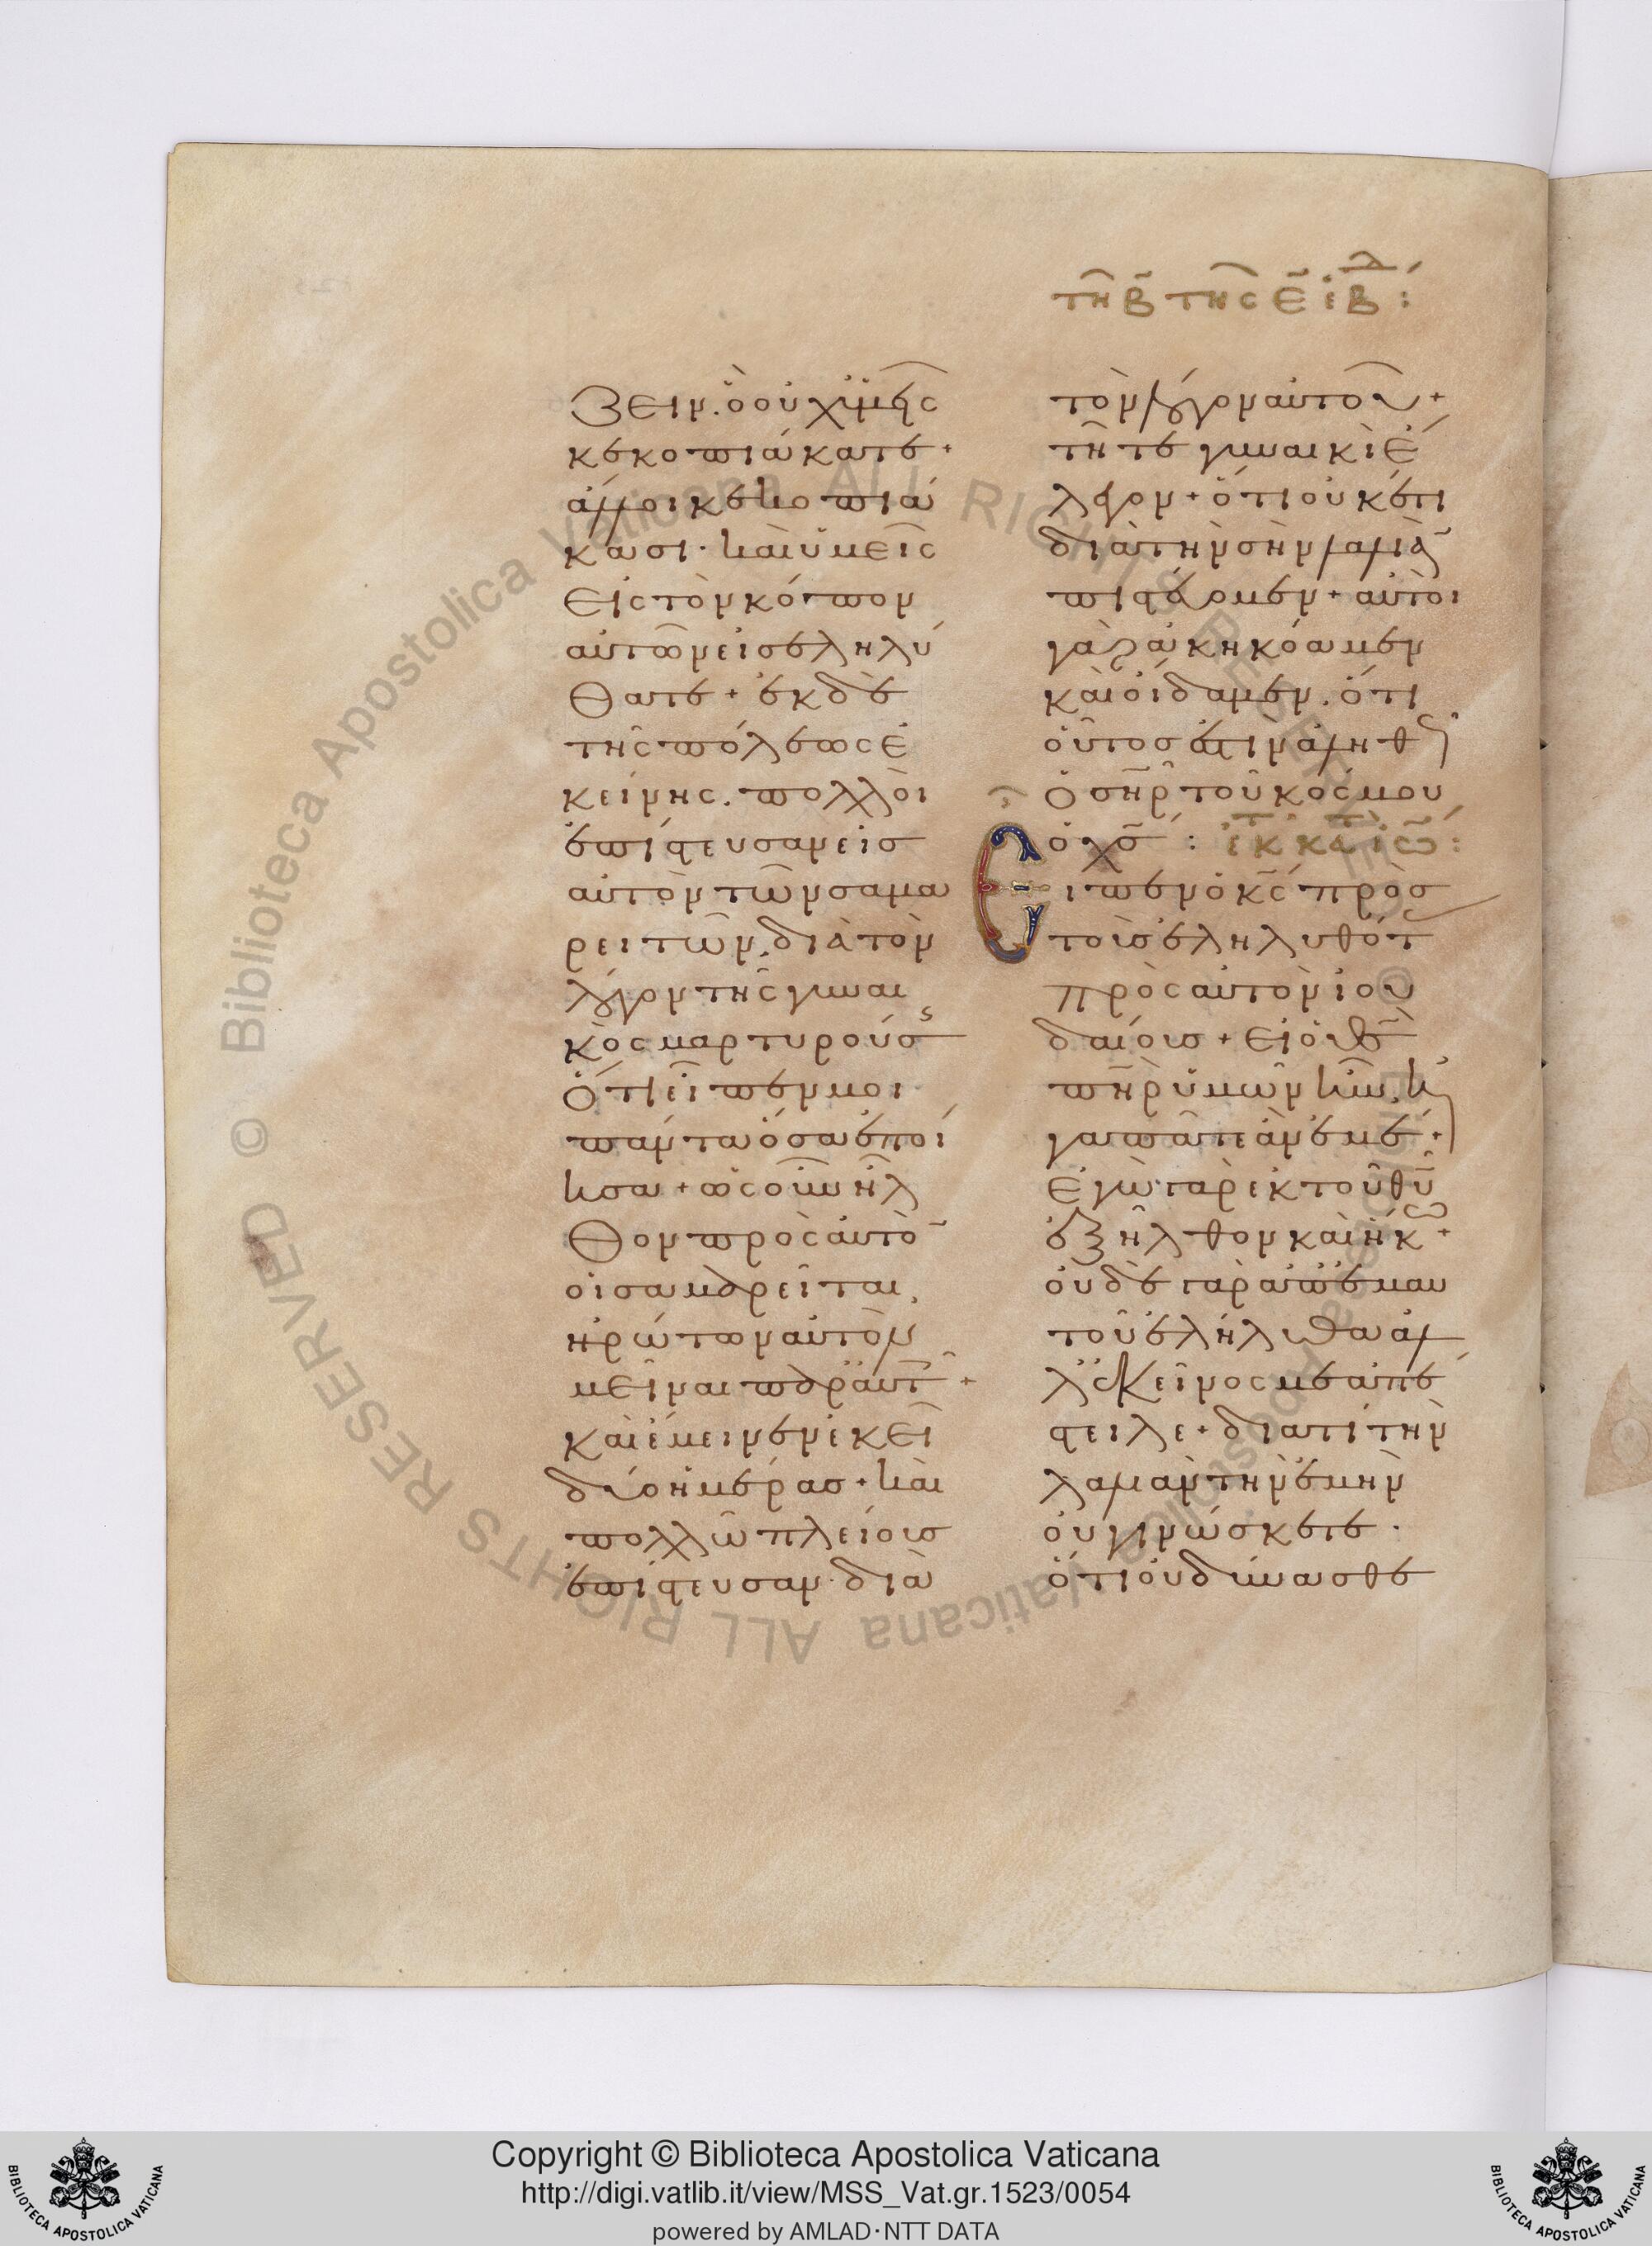 τῆ β̄ τῆς ε̄ ἑβδ :
ζειν. ὃ οὐχ ὑμεῖς
κεκοπιάκατε+
ἄλλοι κεκοπιά
κασι· καὶ ὑμεῖς
εἰς τὸν κόπον
αὐτῶν εἰσεληλύ
θατε+ ἐκ δὲ
τῆς πόλεως ἐ
κείνης. πολλοὶ
ἐπίστευσαν εἰς
αὐτὸν τῶν σαμα
ρειτῶν, διὰ τὸν
λόγον τῆς γυναι
κὸς μαρτυρούσ
ὅτι εἶπεν μοι
πάντα ὅσα ἐποί
ησα+ ὡς οὖν ἦλ
θον πρὸς αὐτὸ̄
οἱ σαμαρεῖται,
ἠρώτων αὐτὸν
μεῖναι παρ' αὐτ+
καὶ ἔμεινεν ἐκεῖ
δύο ἡμέρας+ καὶ
πολλῶ πλείους
ἐπίστευσαν· διὰ
τὸν λόγον αὐτοῦ+
τῆ τε γυναικὶ ἔ
λεγον+ ὅτι οὐκέτι
διὰ τὴν σὴν λαλιὰ̄
πιστεύομεν+ αὐτοὶ
γὰρ ἀκηκόαμεν
καὶ οἴδαμεν. ὅτι
οὗτος ἐστιν ἀληθ
ὁ σ̄ηρ τοῦ κόσμου
ὁ χ̄σ : ἐκ κατ ἰω :
Εἶπεν ὁ κ̄ς πρὸς
τοὺς ἐληλυθότ
πρὸς αὐτὸν ἰου
δαίους+ εἰ ὁ θ̄ς
π̄ηρ ὑμῶν ἦν, ἠ
γαπᾶτε ἂν ἐμέ+
ἐγὼ γὰρ ἐκ τοῦ θ̄υ
ἐξῆλθον καὶ ἥκω+
οὐδὲ γὰρ ἀπ' ἐμαυ
τοῦ ἐλήλυθα ἀλ
λ' ἐκεῖνος με ἀπέ
στειλε+ διατί τὴν
λαλιὰν τὴν ἐμὴν
οὐ γινώσκετε·
ὅτι οὐ δύνασθε
Biblioteca Apostolica Vaticana ALL RIGHTS RESERVED ©
Biblioteca Apostolica Vaticana ALL RIGHTS RESERVED ©
Copyright © Biblioteca Apostolica Vaticana
http://digi.vatlib.it/view/MSS_Vat.gr.1523/0054
powered by AMLAD·NTT DATA
BIBLIOTECA APOSTOLICA VATICANA
BIBLIOTECA APOSTOLICA VATICANA